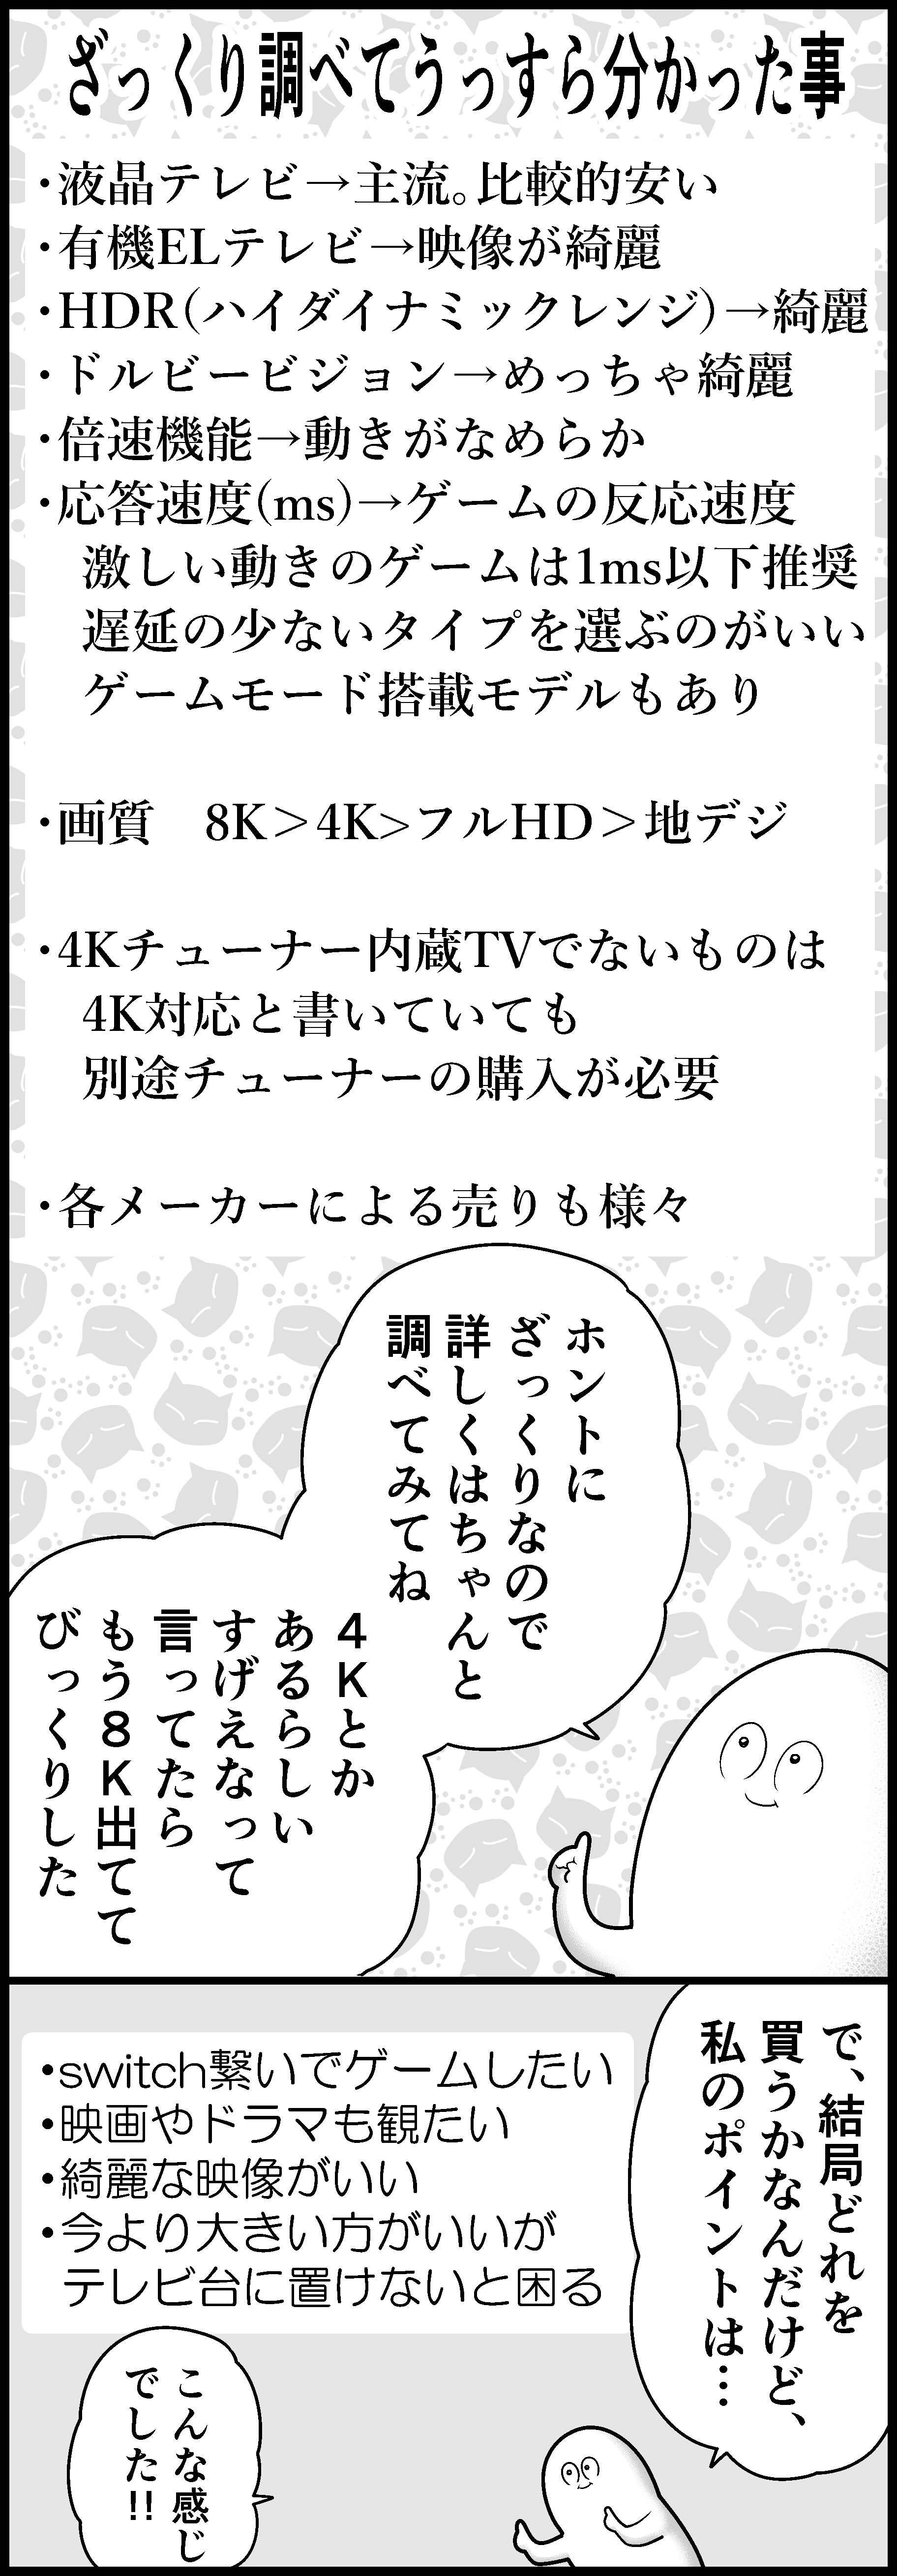 ざっくり調べてうっすら分かった事
・液晶テレビ→主流。比較的安い
・有機ELテレビ→映像が綺麗
・HDR(ハイダイナミックレンジ)→綺麗
・ドルビービジョン→めっちゃ綺麗
・倍速機能→動きがなめらか
・応答速度(ms)→ゲームの反応速度
激しい動きのゲームは1ms以下推奨
遅延の少ないタイプを選ぶのがいい
ゲームモード搭載モデルもあり
・画質　8K＞4K>フルHD＞地デジ
・4Kチューナー内蔵TVでないものは
4K対応と書いていても
別途チューナーの購入が必要
・各メーカーによる売りも様々
ホントに
ざっくりなので
詳しくはちゃんと
調べてみてね
4Kとか
あるらしい
すげえなって
言ってたら
もう8K出てて
びっくりした
で、結局どれを
買うかなんだけど、
私のポイントは…
・switch繋いでゲームしたい
・映画やドラマも観たい
・綺麗な映像がいい
・今より大きい方がいいが
テレビ台に置けないと困る
こんな感じ
でした!!